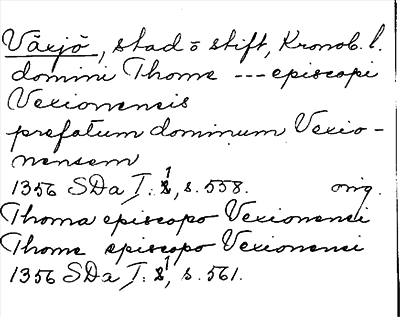 Växjö, stad o stift, Kronob. l.
domini Thome --- episcopi
Vexionensis
prefatum dominum Vexio-
nensem
1356 SDa I: 1, s. 558. orig.
Thoma episcopo Vexionensi
Thome episcopo Vexionensi
1356 SDa I: 1, s. 561.